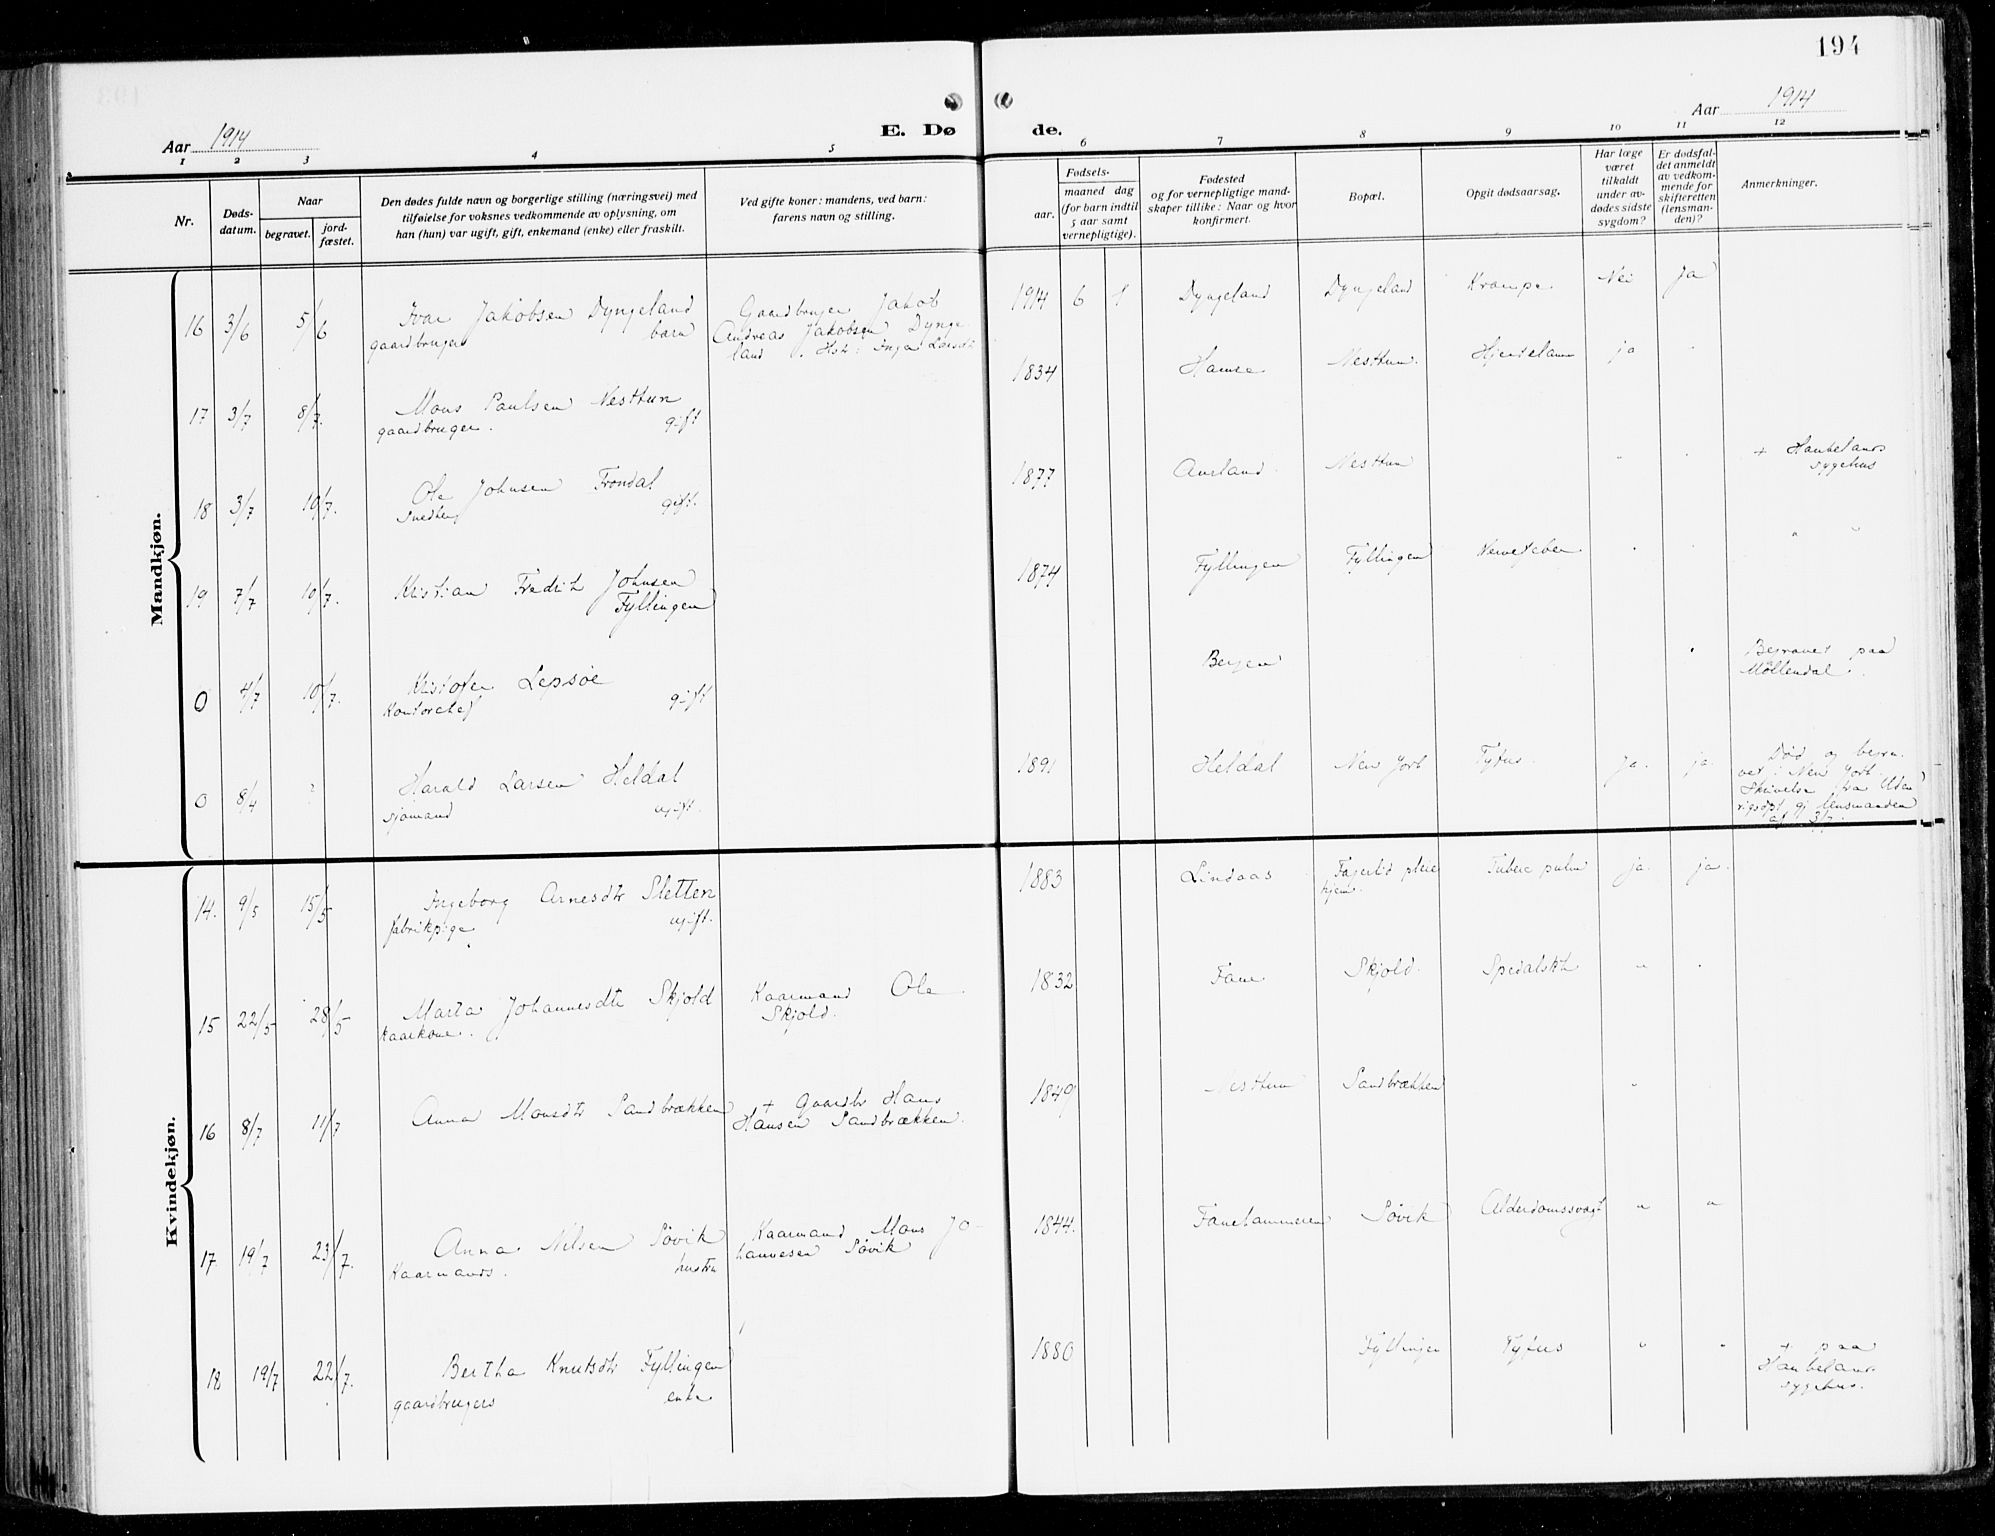 194
Aar 1914
E. Dø
de.
Aar 1914
1 2 3 4 5 6 7 8 9 10 11 12
Nr.
Døds-
datum.
Naar
begravet.
jord-
fæstet.
Den dødes fulde navn og borgerlige stilling (næringsvei) med
tilføielse for voksnes vedkommende av oplysning, om
han (hun) var ugift, gift, enkemand (enke) eller fraskilt.
Ved gifte koner: mandens, ved barn:
farens navn og stilling.
Fødsels-
aar.
maaned dag
(for barn indtil
5 aar samt
vernepligtige).
Fødested
og for vernepligtige mand-
skaper tillike: Naar og hvor
konfirmert.
Bopæl.
Opgit dødsaarsag.
Har læge
været
tilkaldt
under av-
dødes sidste
sygdom?
Er dødsfal-
det anmeldt
av vedkom-
mende for
skifteretten
(lensman-
den)?
Anmerkninger.
Mandkjøn.
16 3/6 5/6 Ivar Jakobsen Dyngeland
gaardbruger barn
Gaardbruger Jakob
Andreas Jakobsen Dynge
land . Hst: Inga Larsdt
1914 6 1 Dyngeland Dyngeland Krampe. Nei Ja
17 3/7 8/7. Mons Paulsen Nesttun
gaardbruger. gift
1834 Hamre Nesttun. Hjertelam ja "
18 3/7 10/7. Ole Johnsen Frondal
Snedker gift.
1877 Aurland. Nesttun " " + Haukelands
sygehus
19 7/7 10/7. Kristian Fredrik Johnsen
Fyllingen
1874 Fyllingen Fyllingen Nervefeber " " " "
0 4/7 10/7. Kristofer Lepsöe
Kontorchef gift
Bergen " Begravet paa
Möllendal.
0 8/4 ? Harald Larsen Heldal
sjömand ugift.
1891 Heldal New York Tyfus. Ja. ja. Død og begra-
vet i New York.
Skrivelse fra Uden
rigsdpt gj lensmanden
af 3/7.
Kvindekjøn.
14. 9/5 15/5 Ingeborg Arnesdtr Sletten
fabrikpige ugift.
1883 Lindaas Fagerlid pleie
hjem. Tuberc pulm ja. ja.
15 22/5 28/5 Marta Johannesdtr Skjold
kaarkone.
Kaarmand Ole
Skjold.
1832 Fane Skjold. Spedalsk " "
16 8/7 11/7 Anna Monsdtr Sandbrækken
+ Gaardbr Hans
Hansen Sandbrækken.
1849 Nesttun Sandbrækken "
17. 19/7 23/7. Anna Nilsen Søvik
Kaarmands. hustru
Kaarmand Mons Jo-
hannesen Søvik
1844. Fanehammeren Søvik Alderdomssvagt " "
18 19/7 22/7. Bertha Knutsdtr Fyllingen
gaardbrugers enke
1880 Fyllingen Tyfus " " + paa
Haukelands
sygehus.